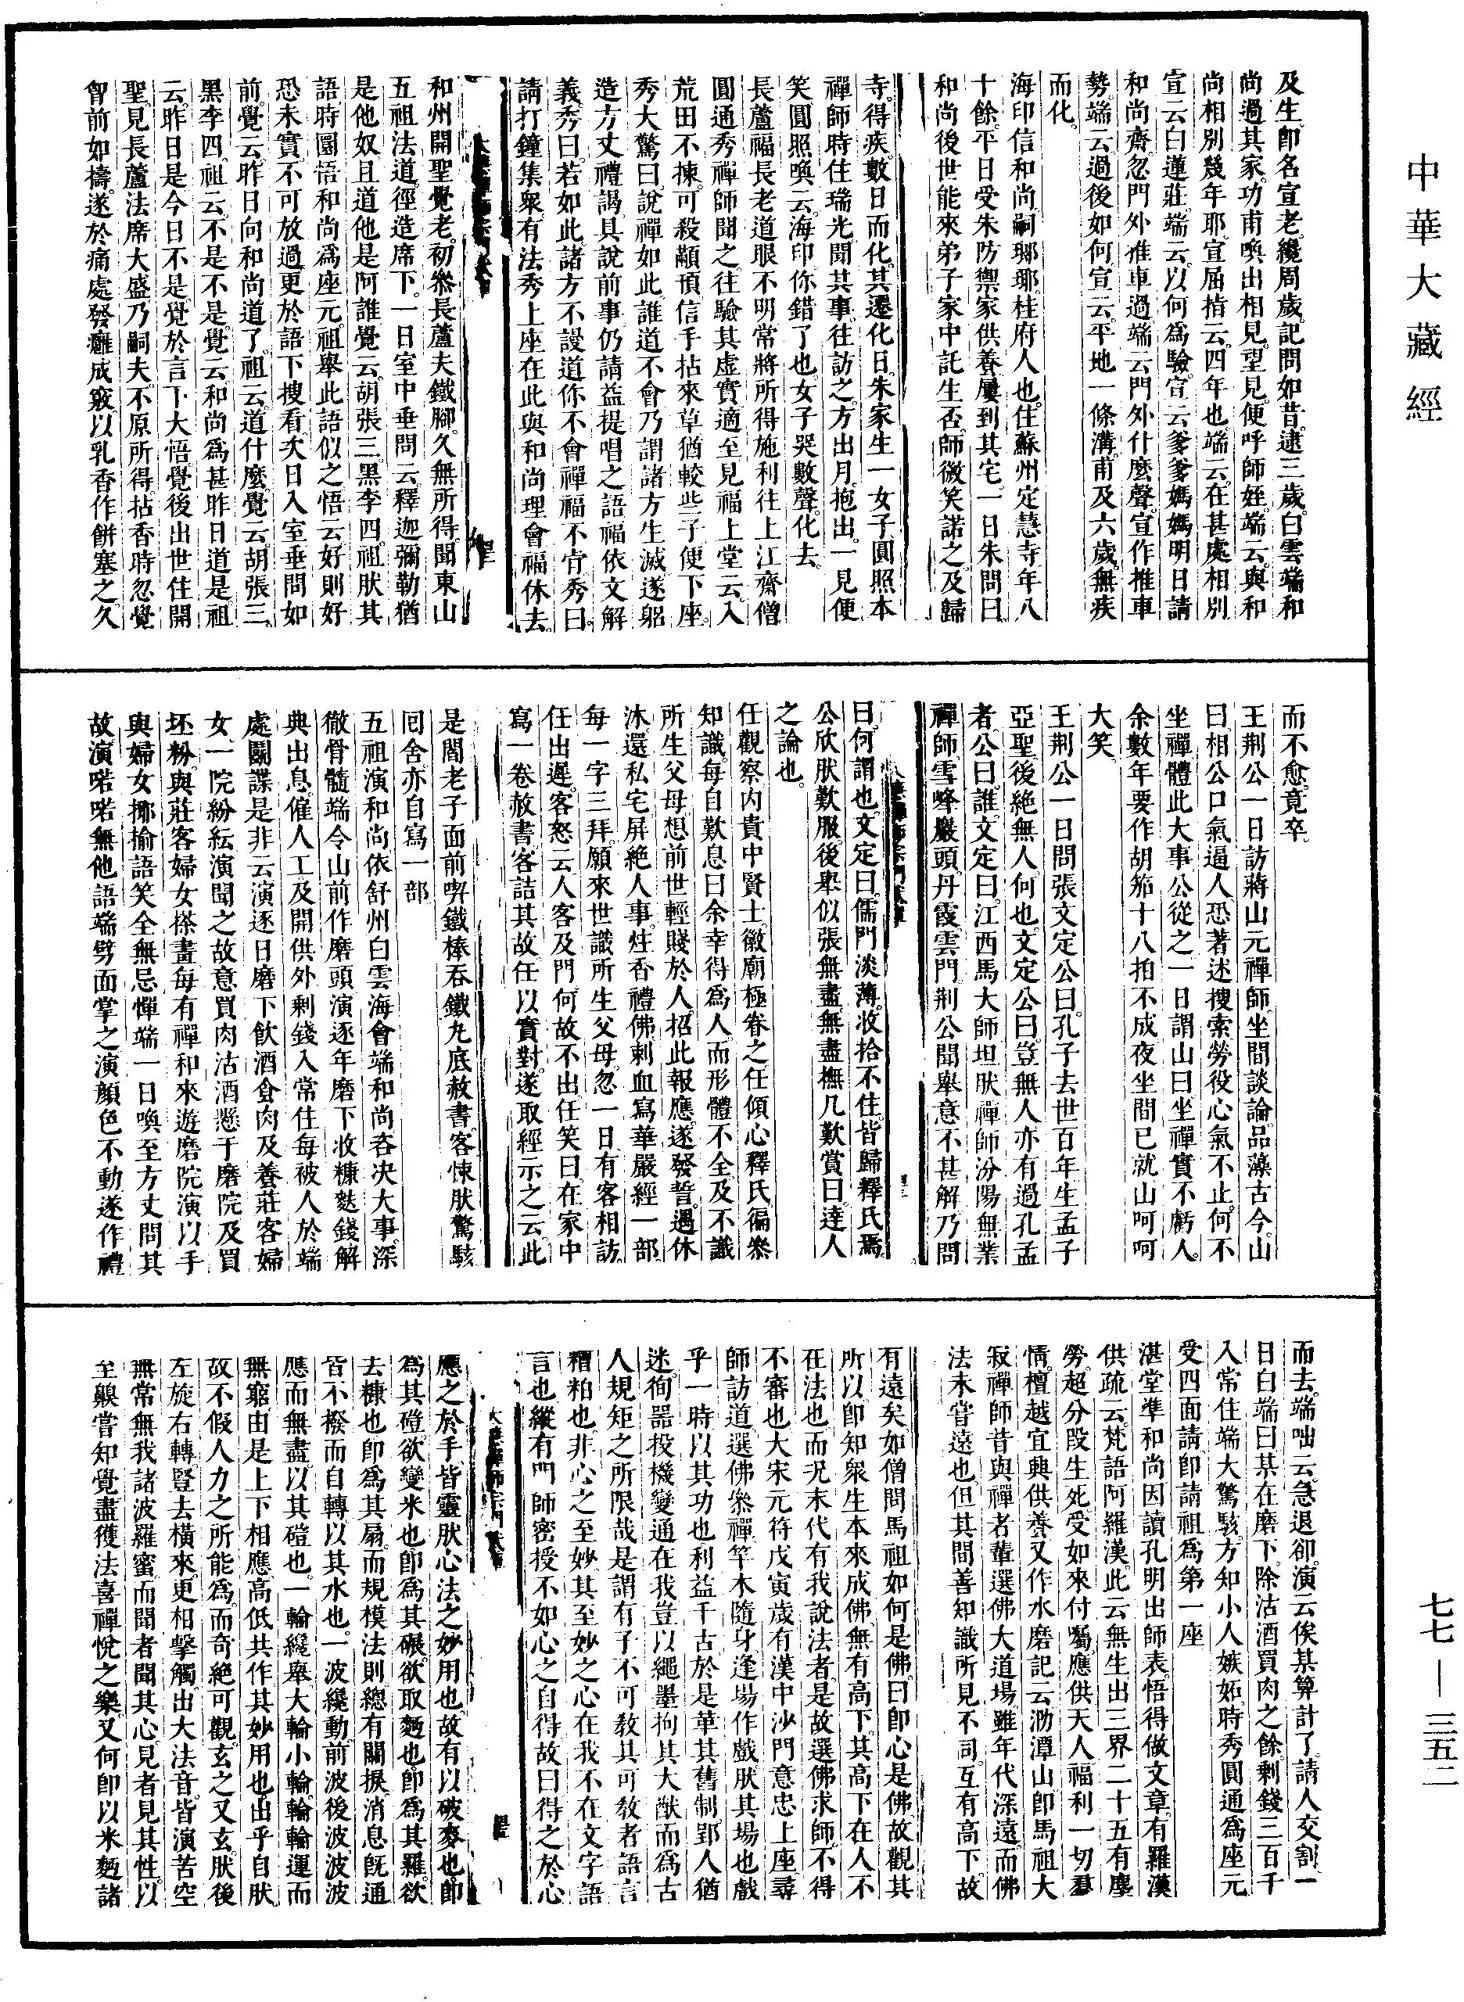 中華大藏經
及生卽名宣老纔周歲記問如昔逮三歲白雲端和
尚過其家功甫喚出相見望見便呼師姪端云與和
尚相別幾年耶宣屈指云四年也端云在甚處相別
宣云白蓮莊端云以何爲驗宣云爹爹媽媽明日請
和尚齋忽門外推車過端云門外什麼聲宣作推車
勢端云過後如何宣云平地一條溝甫及六歲無疾
而化
海印信和尚嗣瑯琊桂府人也住蘇州定慧寺年八
十餘平日受朱防禦家供養屢到其宅一日朱問曰
和尚後世能來弟子家中託生否師微笑諾之及歸
寺得疾數日而化其遷化日朱家生一女子圓照本
禪師時住瑞光聞其事往訪之方出月抱出一見便
笑圓照喚云海印你錯了也女子哭數聲化去
長蘆福長老道眼不明常將所得施利往上江齋僧
圓通秀禪師聞之往驗其虛實適至見福上堂云入
荒田不揀可殺顢頇信手拈來草猶較些子便下座
秀大驚曰說禪如此誰道不會乃謂諸方生滅遂躬
造方丈禮謁具說前事仍請益提唱之語福依文解
義秀曰若如此諸方不謾道你不會禪福不肯秀曰
請打鐘集眾有法秀上座在此與和尚理會福休去
和州開聖覺老初參長蘆夫鐵腳久無所得聞東山
五祖法道徑造席下一日室中垂問云釋迦彌勒猶
是他奴且道他是阿誰覺云胡張三黑李四祖肰其
語時圜悟和尚爲座元祖舉此語似之悟云好則好
恐未實不可放過更於語下搜看次日入室垂問如
前覺云昨日向和尚道了祖云道什麼覺云胡張三
黑李四祖云不是不是覺云和尚爲甚昨日道是祖
云昨日是今日不是覺於言下大悟覺後出世住開
聖見長蘆法席大盛乃嗣夫不原所得拈香時忽覺
胷前如擣遂於痛處發癰成竅以乳香作餅塞之久
而不愈竟卒
王荆公一日訪蔣山元禪師坐間談論品藻古今山
曰相公口氣逼人恐著述搜索勞役心氣不正何不
坐禪體此大事公從之一日謂山曰坐禪實不虧人
余數年要作胡笳十八拍不成夜坐間已就山呵呵
大笑
王荆公一日問張文定公曰孔子去世百年生孟子
亞聖後絶無人何也文定公曰豈無人亦有過孔孟
者公曰誰文定曰江西馬大師坦肰禪師汾陽無業
禪師雪峰巖頭丹霞雲門荆公聞舉意不甚解乃問
曰何謂也文定曰儒門淡薄收拾不住皆歸釋氏焉
公欣肰歎服後舉似張無盡無盡撫几歎賞曰達人
之論也
任觀察内貴中賢士徽廟極眷之任傾心釋氏徧參
知識每自歎息曰余幸得爲人而形體不全及不識
所生父母想前世輕賤於人招此報應遂發誓遇休
沐還私宅屏絕人事炷香禮佛刺血寫華嚴經一部
每一字三拜願來世識所生父母忽一日有客相訪
任出遲客怒云人客及門何故不出任笑曰在家中
寫一卷赦書客詰其故任以實對遂取經示之云此
是閻老子面前喫鐵棒吞鐵丸底赦書客悚肰驚駭
回舍亦自寫一部
五祖演和尚依舒州白雲海會端和尚咨決大事深
徹骨髓端令山前作磨頭演逐年磨下收糠麩錢解
典出息僱人工及開供外剩錢入常住每被人於端
處鬭諜是非云演逐日磨下飲酒食肉及養莊客婦
女一院紛紜演聞之故意買肉沽酒懸于磨院及買
坯粉與莊客婦女搽畫每有禪和來遊磨院演以手
與婦女揶揄語笑全無忌憚端一日喚至方丈問其
故演喏喏無他語端劈面掌之演顏色不動遂作禮
而去端咄云急退卻演云俟某算計了請人交割一
日白端曰某在磨下除沽酒買肉之餘剩錢三百千
入常住端大驚駭方知小人嫉妬時秀圓通爲座元
受四面請卽請祖爲第一座
湛堂準和尚因讀孔明出師表悟得做文章有羅漢
供疏云梵語阿羅漢此云無生出三界二十五有塵
勞超分段生死受如來付囑應供天人福利一切羣
情檀越宜興供養又作水磨記云泐潭山卽馬祖大
寂禪師昔與禪者輩選佛大道場雖年代深遠而佛
法未甞遠也但其間善知識所見不同互有高下故
有遠矣如僧問馬祖如何是佛曰卽心是佛故觀其
所以卽知衆生本來成佛無有高下其高下在人不
在法也而況末代有我說法者是故選佛求師不得
不審也大宋元符戊寅歲有漢中沙門意忠上座尋
師訪道選佛參禪竿木隨身逢場作戲肰其場也戲
乎一時以其功也利益千古於是革其舊制郢人猶
迷徇器投機變通在我豈以繩墨拘其大猷而爲古
人規矩之所限哉是謂有子不可教其可教者語言
糟粕也非心之至妙其至妙之心在我不在文字語
言也縱有門師密授不如心之自得故曰得之於心
應之於手皆靈肰心法之妙用也故有以破麥也卽
爲其磑欲變米也卽爲其碾欲取麪也卽爲其羅欲
去糠也卽爲其扇而規模法則總有關捩消息旣通
皆不撥而自轉以其水也一波纔動前波後波波波
應而無盡以其磑也一輪纔舉大輪小輪輪輪運而
無窮由是上下相應高低共作其妙用也出乎自肰
故不假人力之所能爲而奇絶可觀玄之又玄肰後
左旋右轉豎去橫來更相擊觸出大法音皆演苦空
無常無我諸波羅蜜而聞者聞其心見者見其性以
至齅甞知覺盡獲法喜禪悅之樂又何卽以米麪諸
七七—三五二